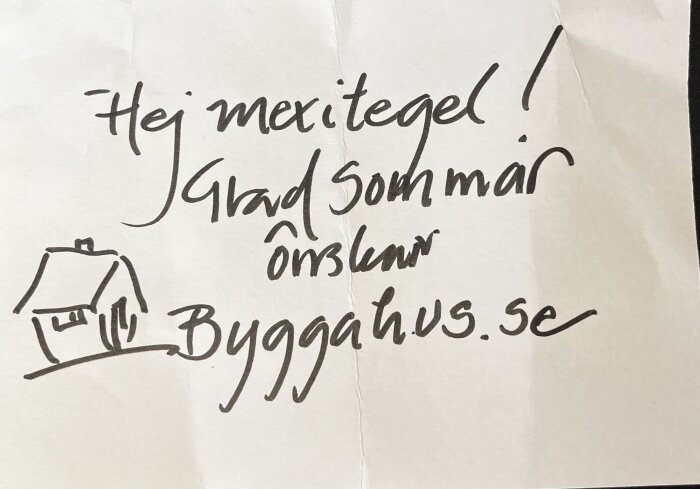 Hej mexitegel!
Glad Sommar
önskar
Byggahus.se